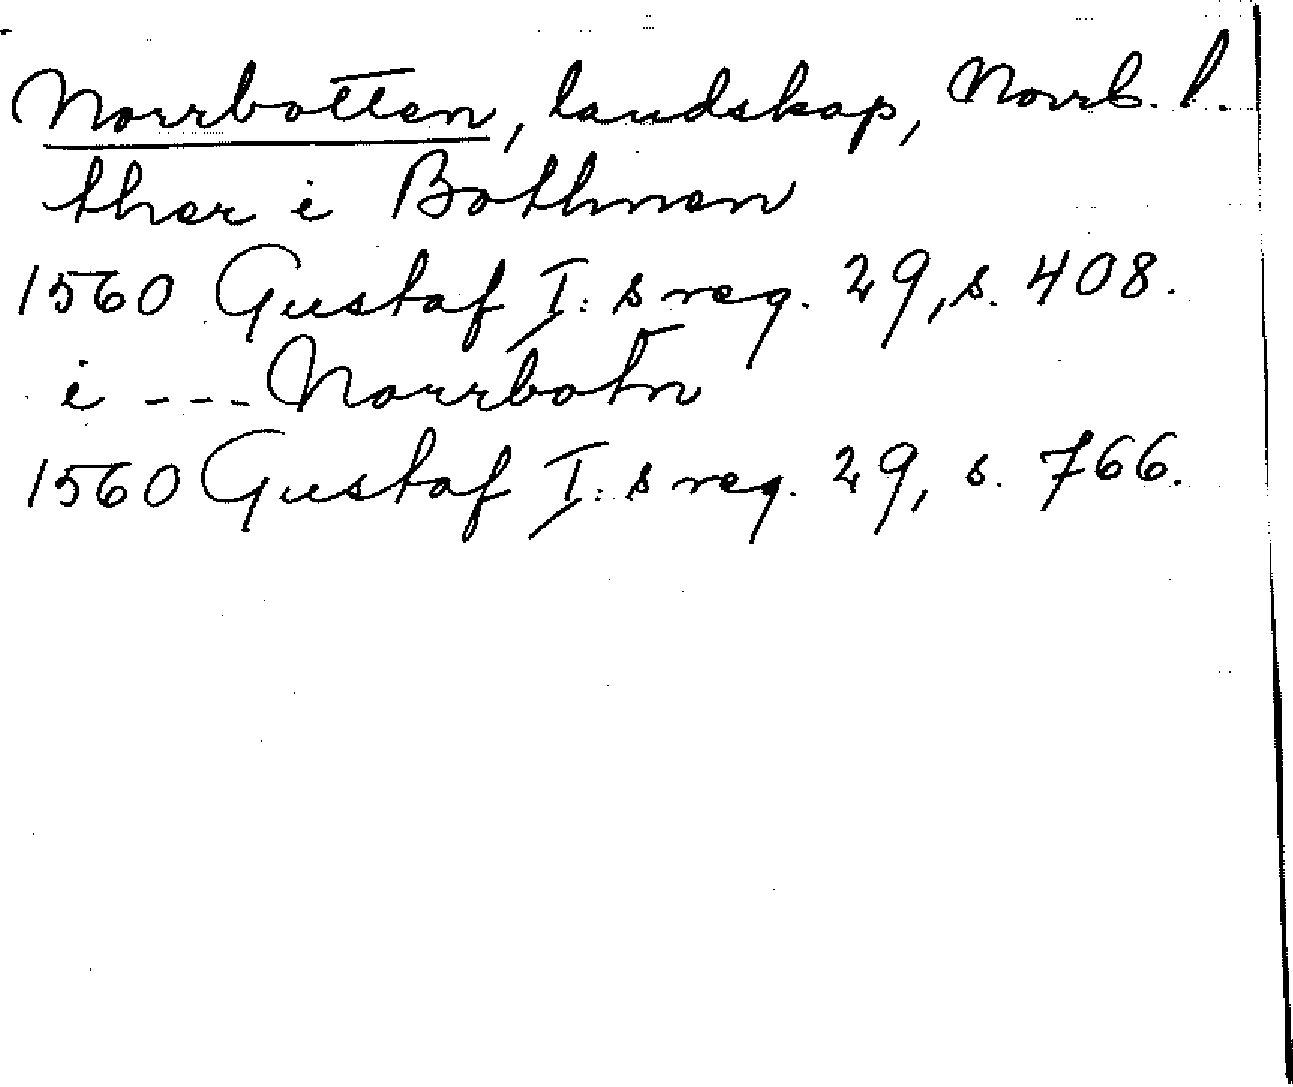 Norrbotten, landskap, Norrb. l.
ther i Bothnen
1560 Gustaf I:s reg. 29, s. 408.
i --- Norrbotn
1560 Gustaf I:s reg. 29, s. 766.